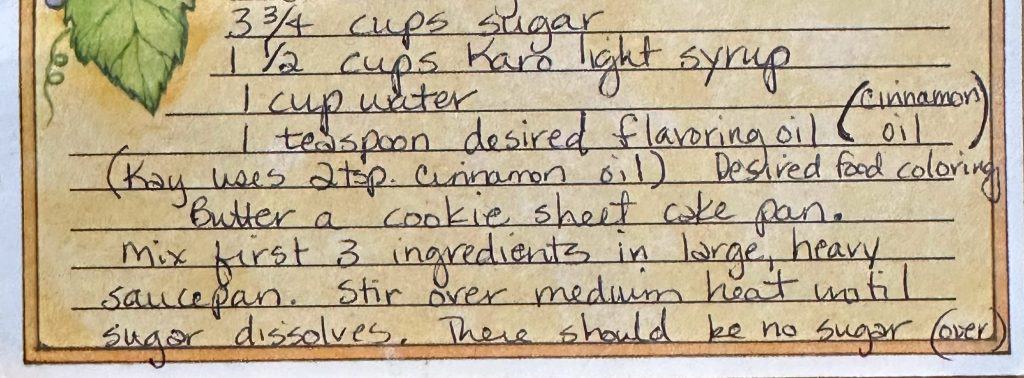 3 3/4 cups sugar
1 1/2 cups Karo light syrup
1 cup water
1 teaspoon desired flavoring oil (cinnamon oil)
(Kay uses 2 tsp. cinnamon oil) Desired food coloring
Butter a cookie sheet cake pan.
Mix first 3 ingredients in large, heavy
saucepan. Stir over medium heat until
sugar dissolves. There should be no sugar (over)